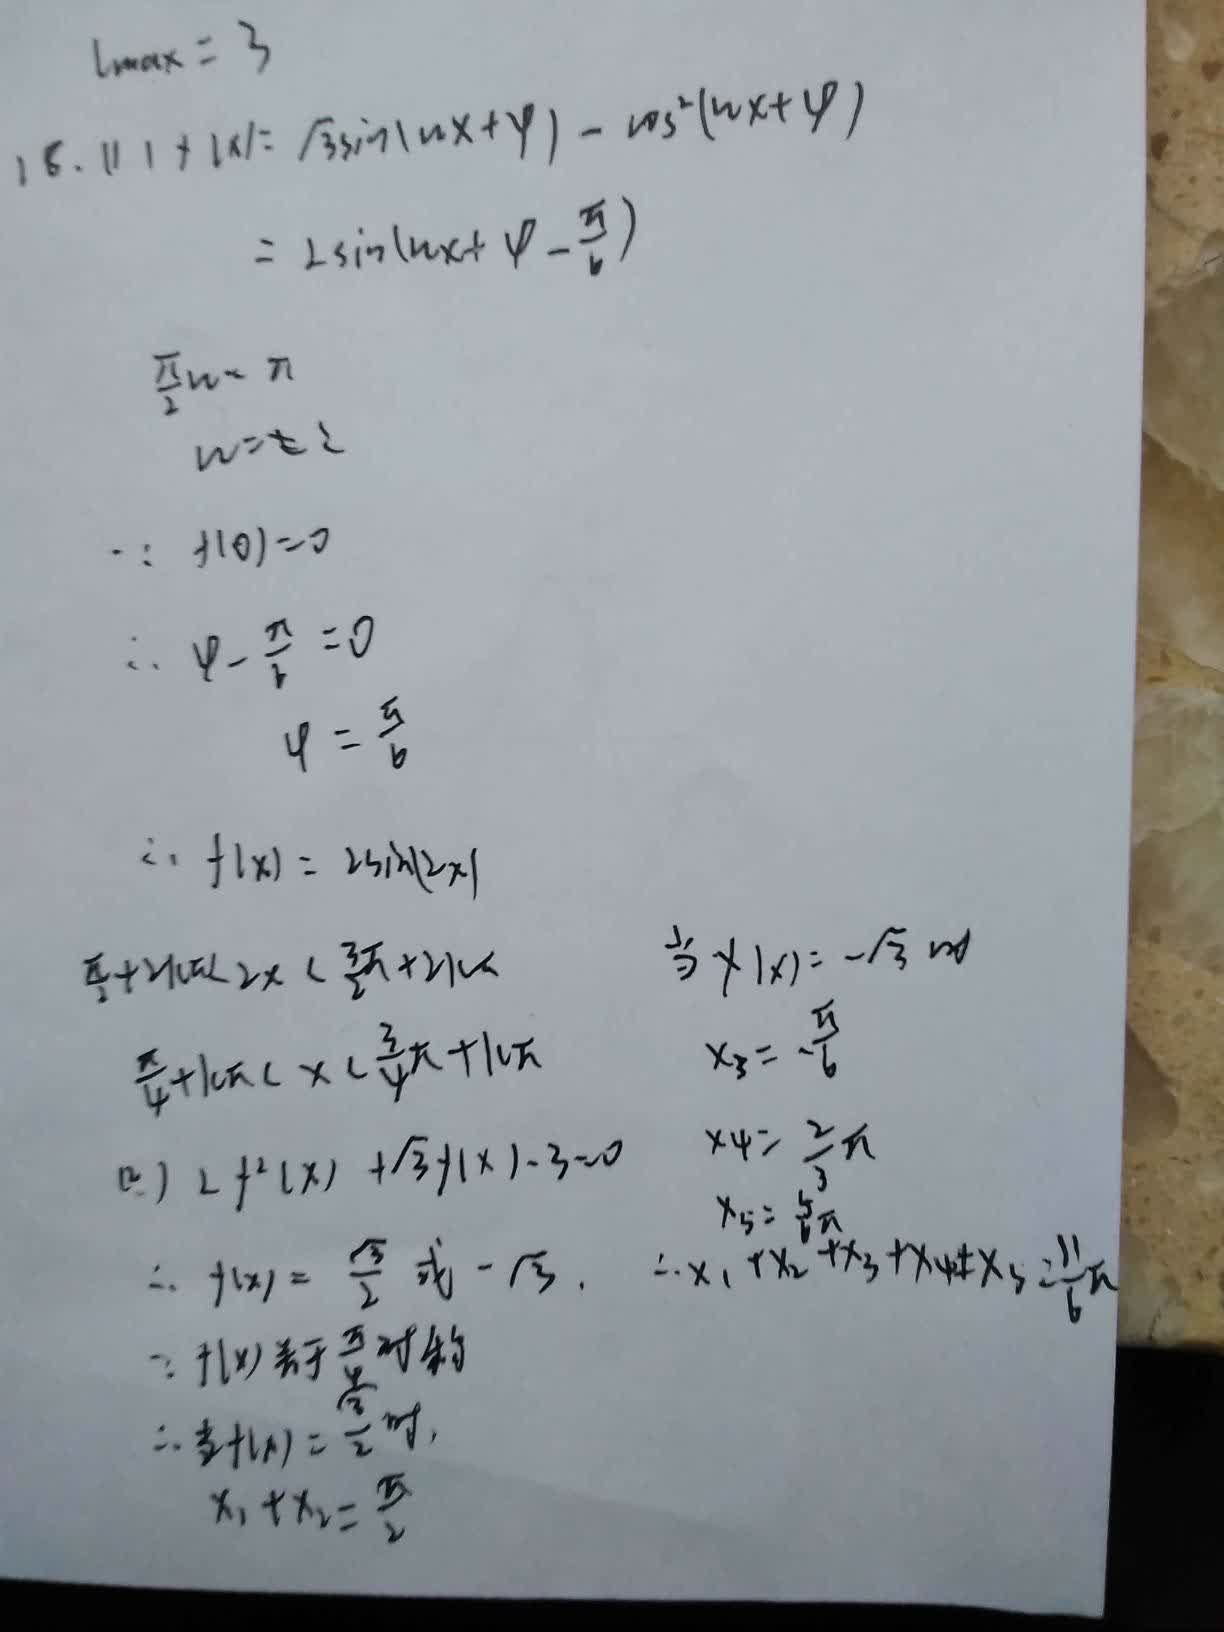 lmax = 3
18. (1) f(x) = √3sin(wx+φ) - cos²(wx+φ)
= 2sin(wx+φ-π/6)
π/2 w = π
w = 2
∵ f(0)=0
∴ φ-π/6=0
φ=π/6
∴ f(x)=2sin(2x)
π/2+2kπ<2x<3/2π+2kπ
π/4+kπ<x<3/4π+kπ
(2) 2f²(x)+√3f(x)-3=0
∴ f(x)=√3/2 或 -√3.
∵ f(x)关于π/4对称
∴ 当f(x)=√3/2时,
x₁+x₂=π/2
当f(x)=-√3时
x₃=-π/6
x₄=2/3π
x₅=5/6π
∴x₁+x₂+x₃+x₄+x₅=11/6π